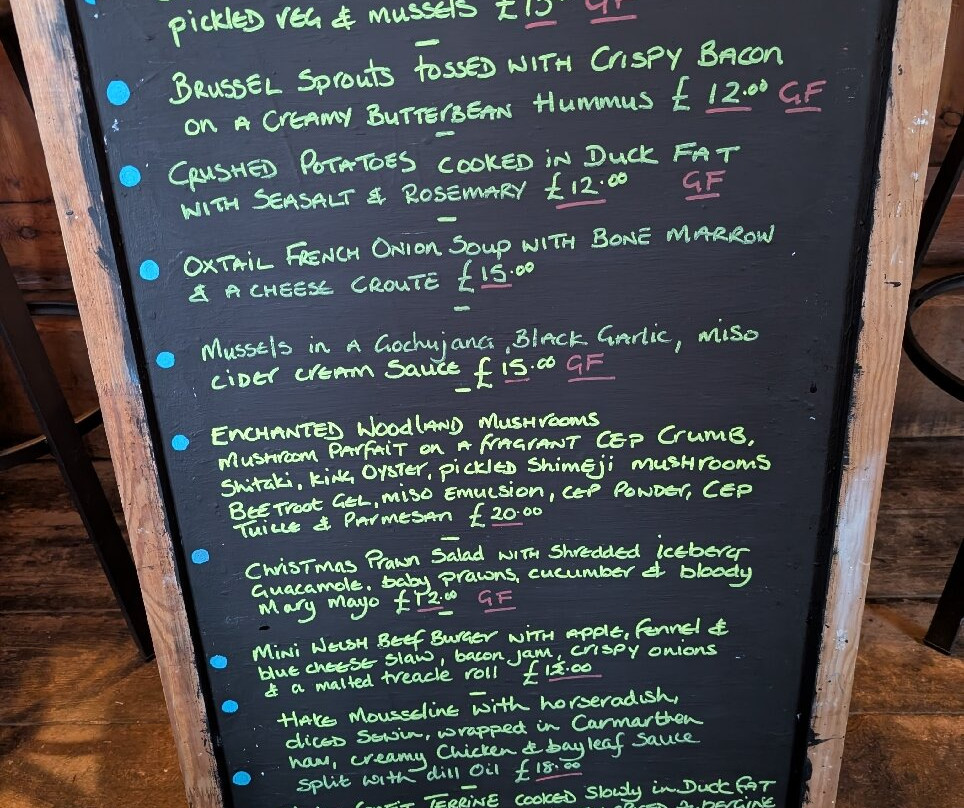 pickled veg & mussels £15. GF
Brussel Sprouts tossed with Crispy Bacon
on a Creamy Butterbean Hummus £12.00 GF
Crushed Potatoes cooked in Duck Fat
with Seasalt & Rosemary £12.00 GF
Oxtail French Onion Soup with Bone Marrow
& a cheese croute £15.00
Mussels in a Gochujang, Black Garlic, miso
cider cream Sauce £15.00 GF
Enchanted Woodland Mushrooms
Mushroom Parfait on a fragrant Cep Crumb,
Shitaki, King Oyster, pickled Shimeji mushrooms
Beetroot Gel, miso Emulsion, cep Powder, Cep
Tuille & Parmesan £20.00
Christmas Prawn Salad with Shredded iceberg
Guacamole, baby prawns, cucumber & bloody
Mary Mayo £12.00 GF
Mini Welsh Beef Burger with apple, fennel &
blue cheese slaw, bacon jam, crispy onions
& a malted treacle roll £12.00
Hake Mousseline with horseradish,
diced Sewin, wrapped in Carmarthen
ham, creamy Chicken & bayleaf Sauce
split with dill Oil £18.00
Terrine cooked slowly in Duck Fat